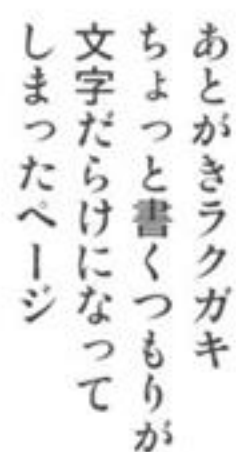 あとがきラクガキ
ちょっと書くつもりが
文字だらけになって
しまったページ